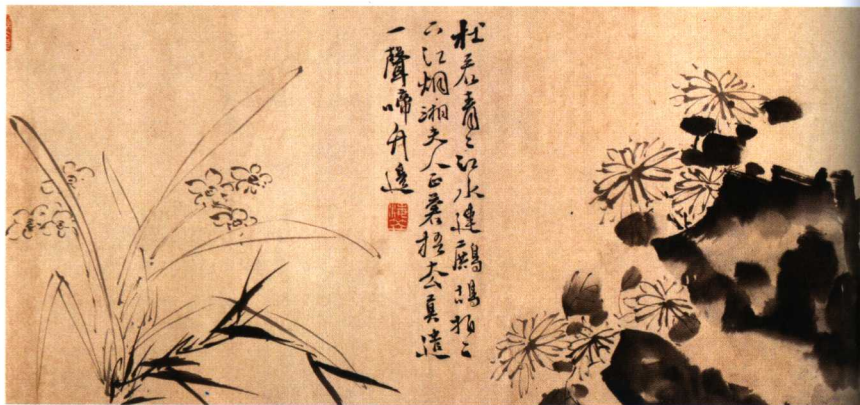 杜若青〻江水連鷓鴣拍〻
下江烟湘夫人正蒼梧去莫遣
一聲啼竹邊